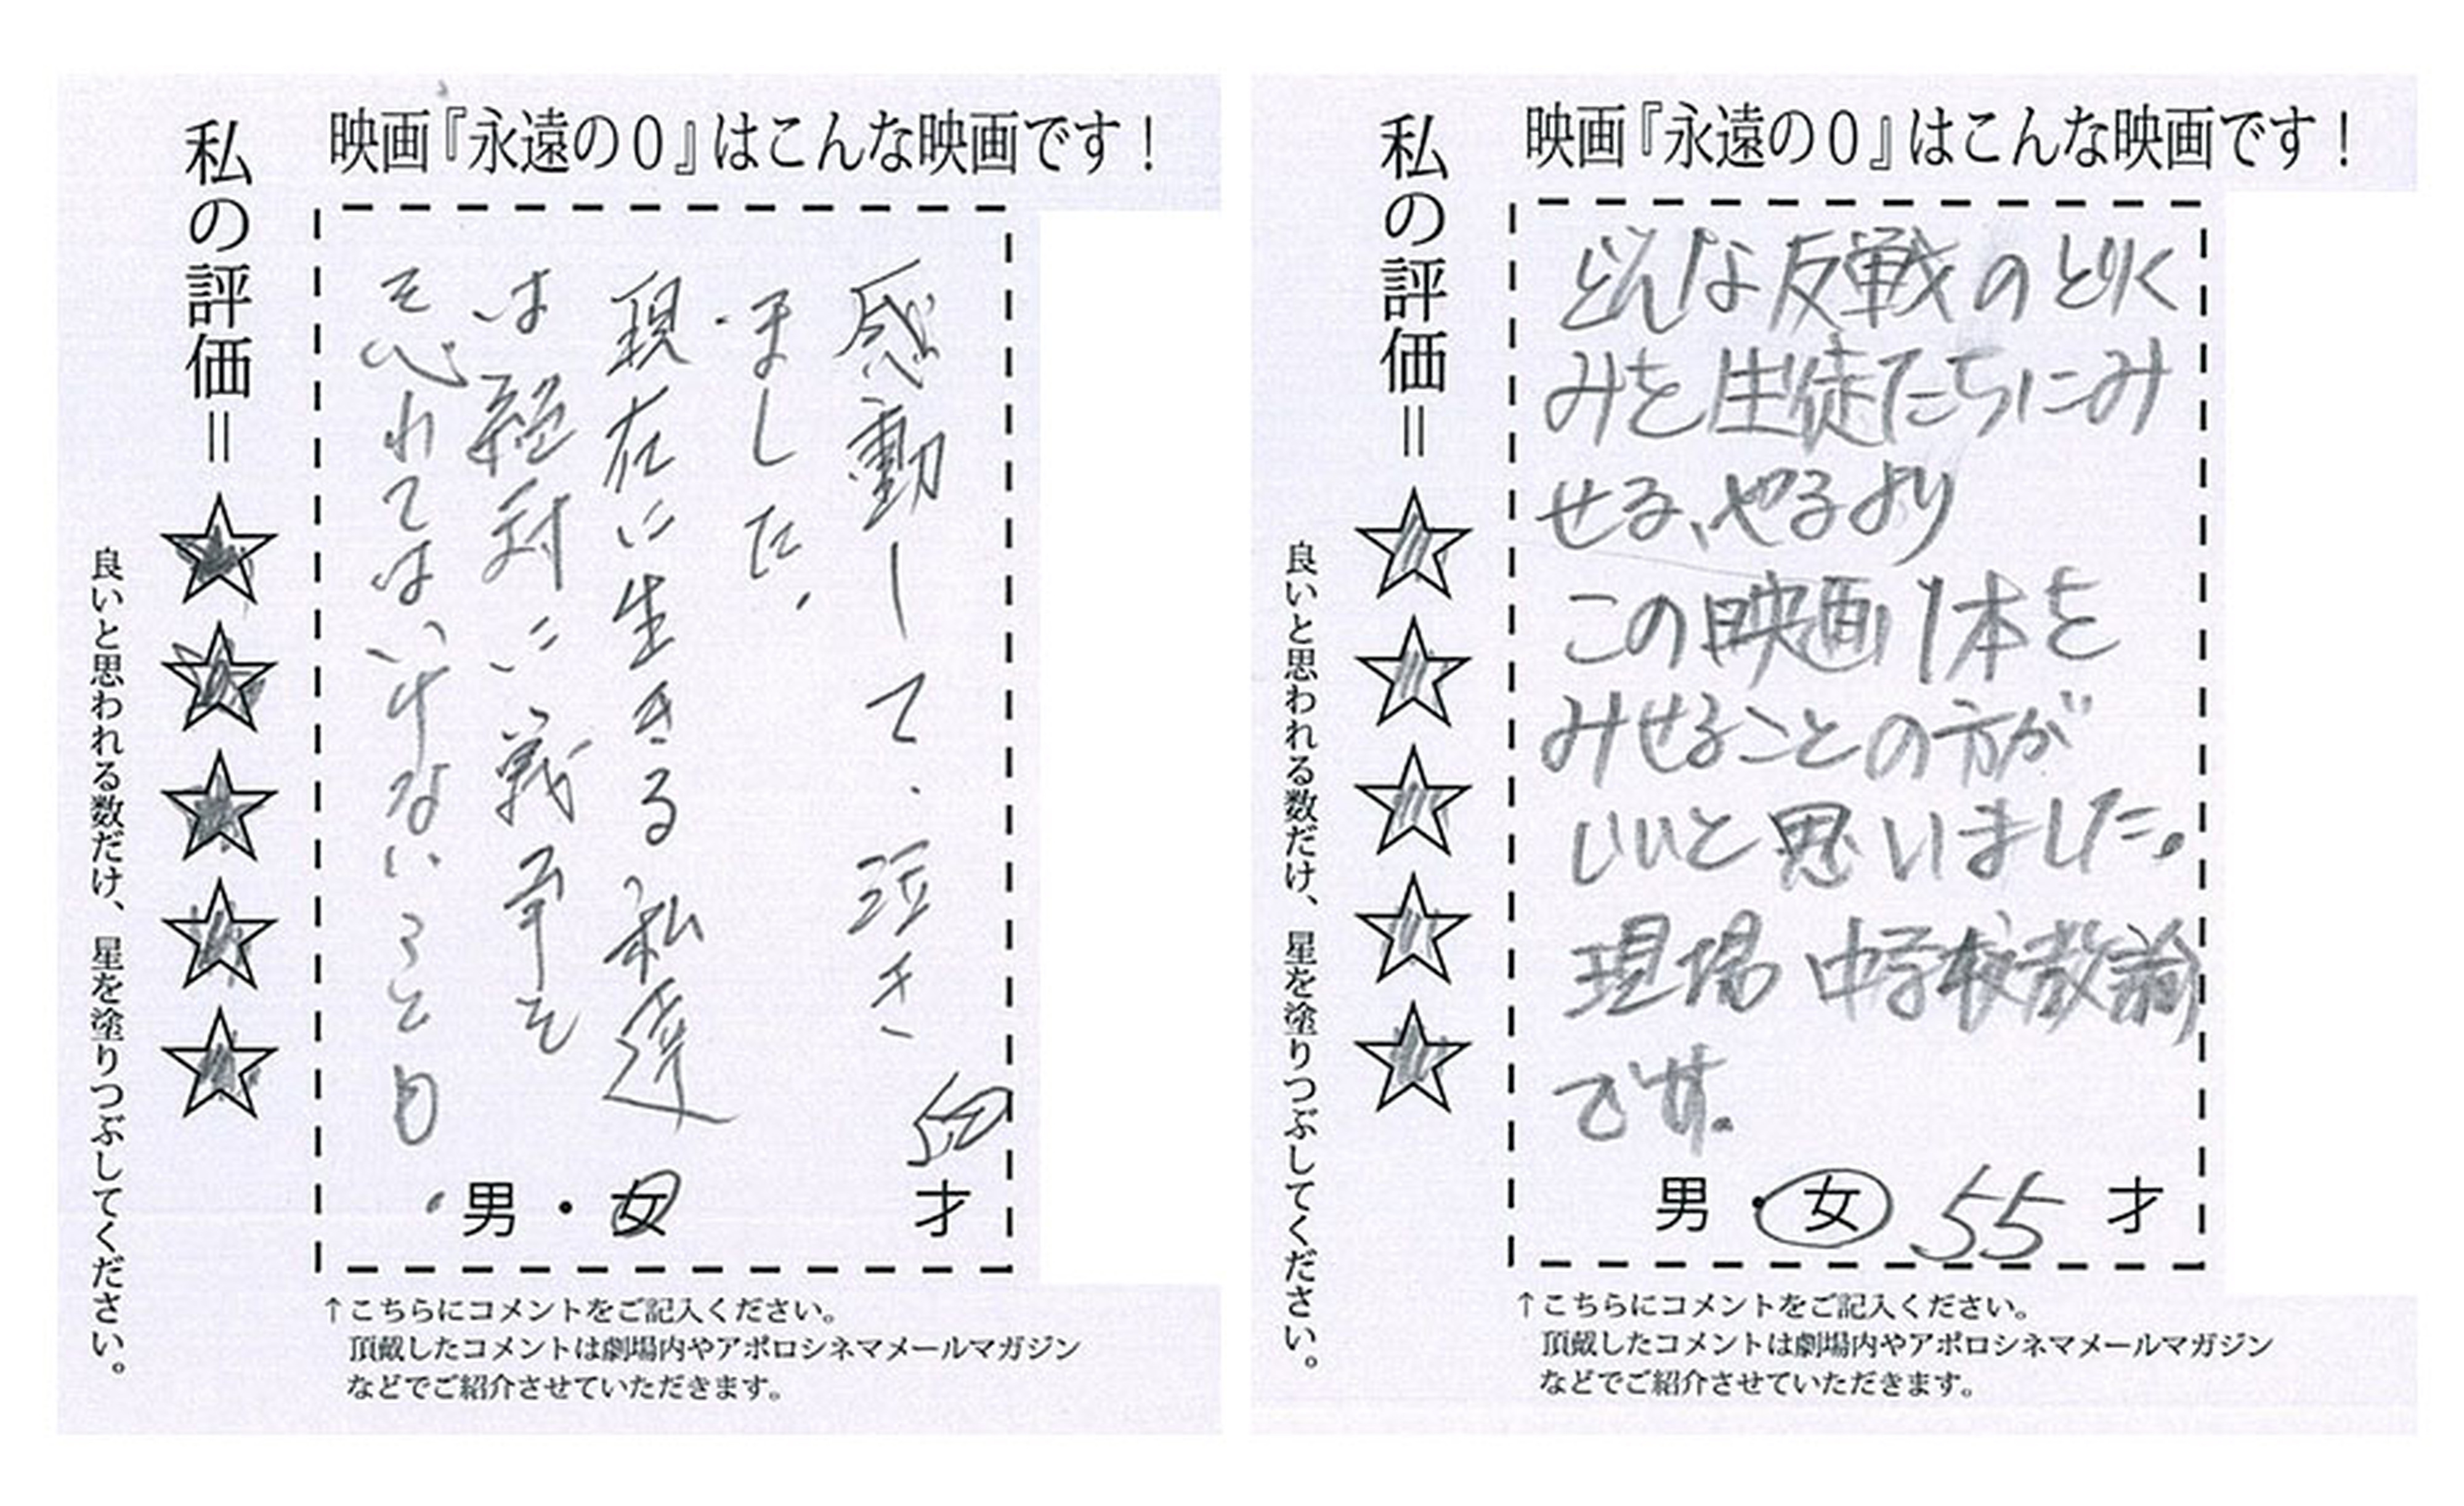 映画『永遠の0』はこんな映画です！
感動して、泣き
ました、
現在に生きる私達
は絶対に戦争を
忘れてはいけないこと
男・女
才
私の評価＝☆☆☆☆☆
良いと思われる数だけ、星を塗りつぶしてください。
↑こちらにコメントをご記入ください。
頂戴したコメントは劇場内やアポロシネマメールマガジン
などでご紹介させていただきます。
映画『永遠の0』はこんな映画です！
どんな反戦のとりく
みを生徒たちにみ
せる、やるより
この映画1本を
みせることの方が
いいと思いました。
現場 中学校教諭
です。
男・女 55 才
私の評価＝☆☆☆☆☆
良いと思われる数だけ、星を塗りつぶしてください。
↑こちらにコメントをご記入ください。
頂戴したコメントは劇場内やアポロシネマメールマガジン
などでご紹介させていただきます。